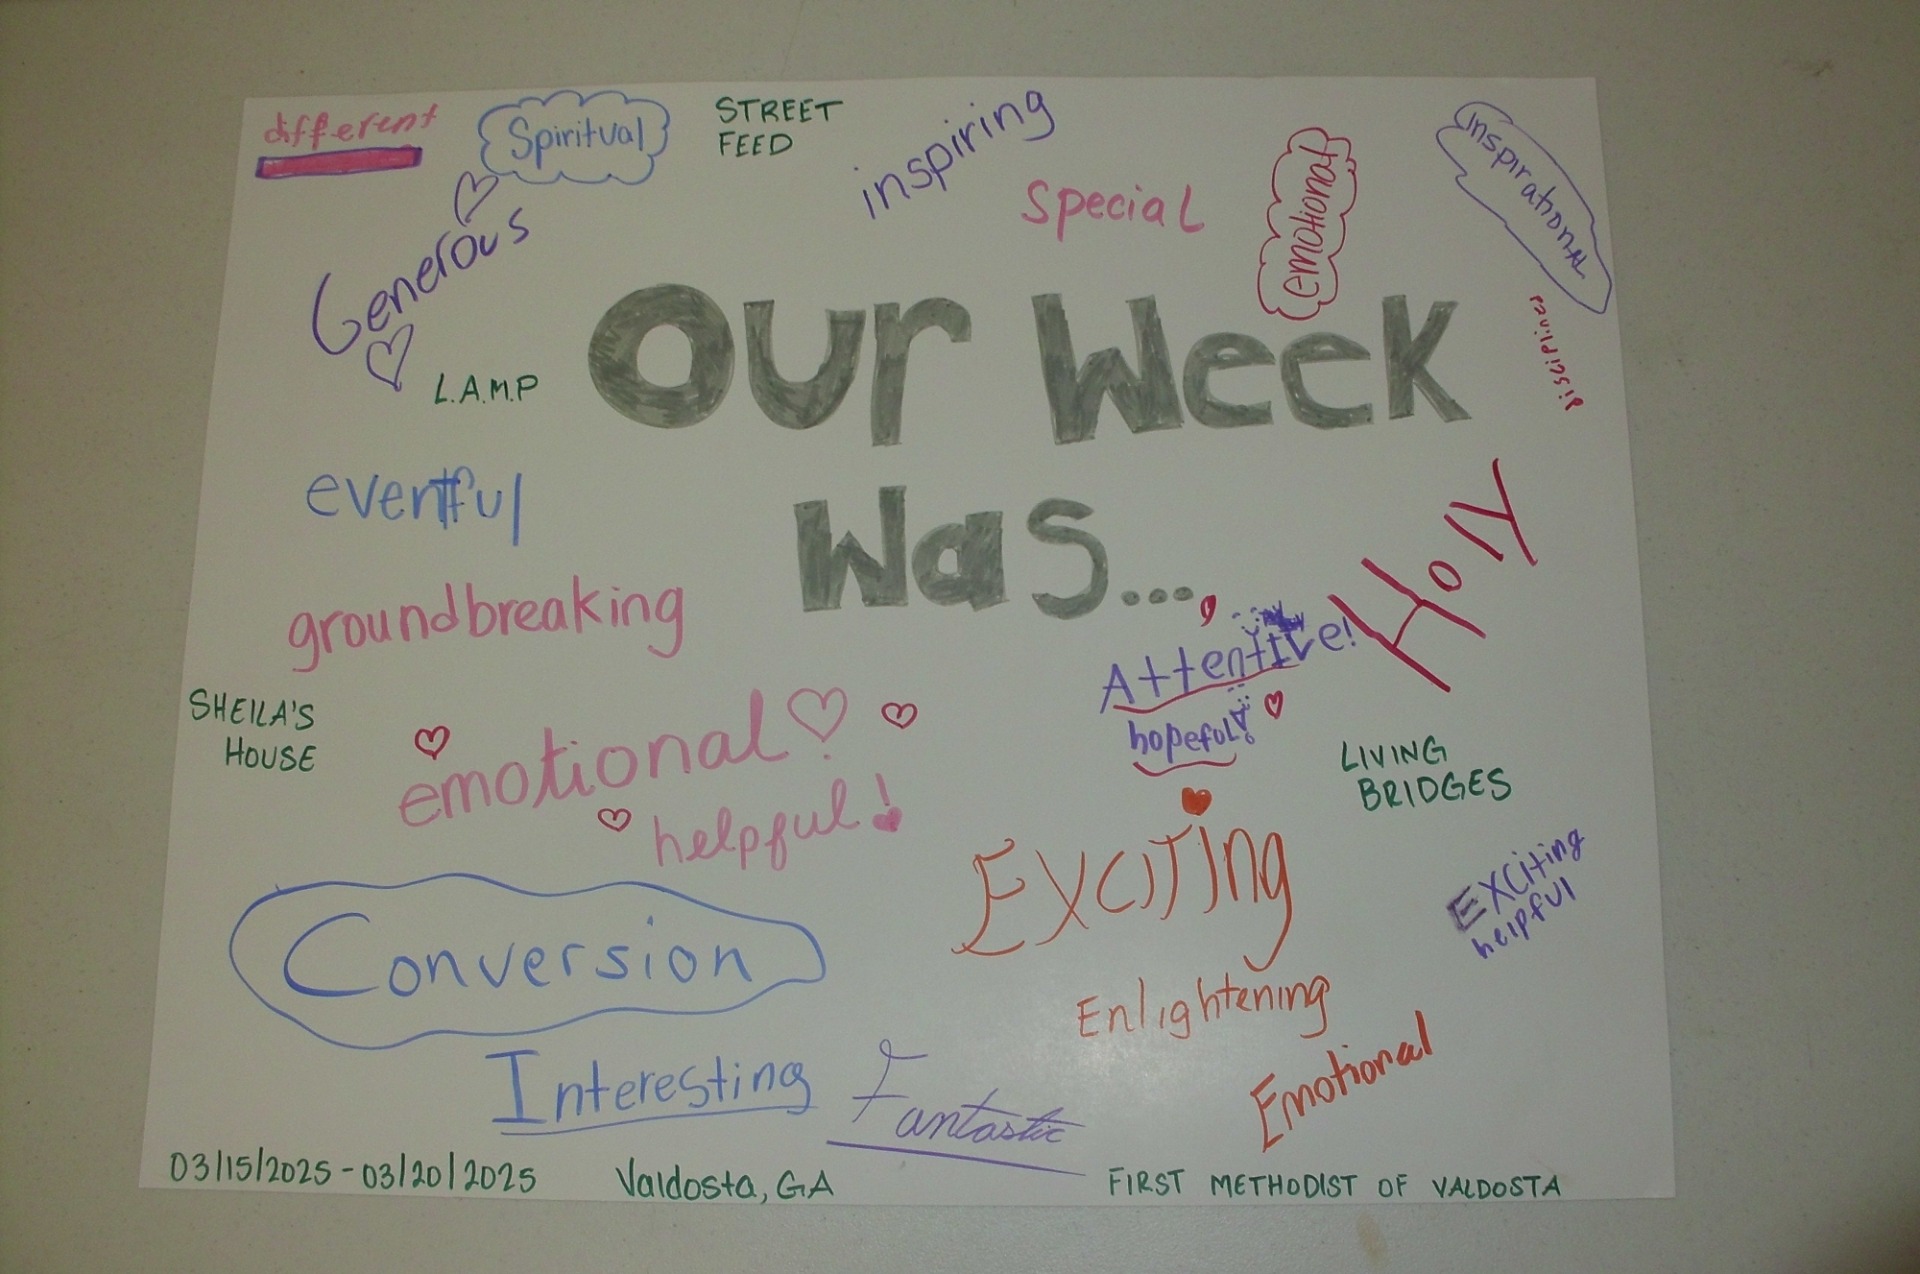 different
Spiritual
STREET
FEED
inspiring
special
emotional
inspirational
Generous
L.A.M.P
discipline
Our Week
Was...
eventful
groundbreaking
Holy
Attentive!
hopeful!
SHEILA'S
HOUSE
emotional
helpful!
LIVING
BRIDGES
Exciting
Exciting
helpful
Conversion
Enlightening
Emotional
Interesting
Fantastic
03/15/2025-03/20/2025
Valdosta, GA
FIRST METHODIST OF VALDOSTA